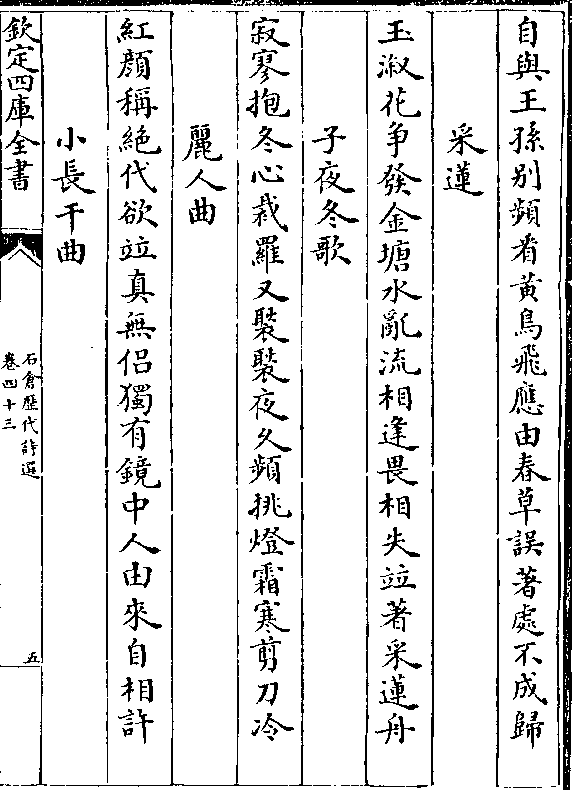 自與王孫别頻看黄鳥飛應由春草誤著處不成歸
采蓮
玉淑花争發金塘水亂流相逢畏相失竝著采蓮舟
子夜冬歌
寂寥抱冬心裁羅又褧褧夜久頻挑燈霜寒剪刀冷
麗人曲
紅顔稱絶代欲竝真無侣獨有鏡中人由來自相許
小長干曲
欽定四庫全書
石倉歴代詩選
卷四十三
五